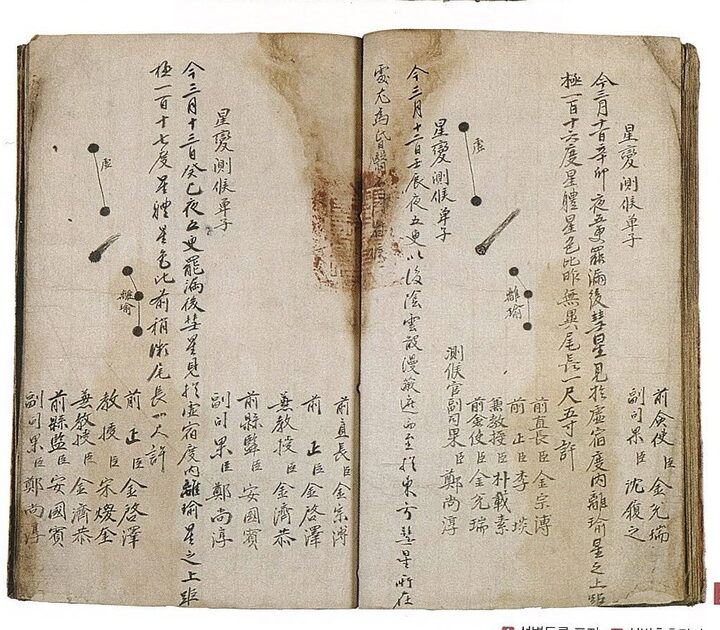 前僉使臣金允瑞
副司果臣沈履之
星變測候單子
今三月十一日辛卯夜五更罷漏後彗星見於虛宿度內離瑜星之上距
極一百十六度星體星色比昨無異尾長一尺五寸許
虛
離瑜
前直長臣金宗溥
前正臣李埮
兼教授臣朴載素
前僉使臣金允瑞
測候官副司果臣鄭尚淳
星變測候單子
今三月十二日壬辰夜五更以後陰雲散漫蔽遮而至於東方彗星所在
處尤爲昏翳
前直長臣金宗溥
前正臣金啓澤
兼教授臣金濟恭
前縣監臣安國賓
副司果臣鄭尚淳
星變測候單子
今三月十三日癸巳夜五更罷漏後彗星見於虛宿度內離瑜星之上距
極一百十七度星體星色比前稍微尾長一尺許
虛
離瑜
前正臣金啓澤
教授臣宋
兼教授臣金濟恭
前縣監臣安國賓
副司果臣鄭尚淳